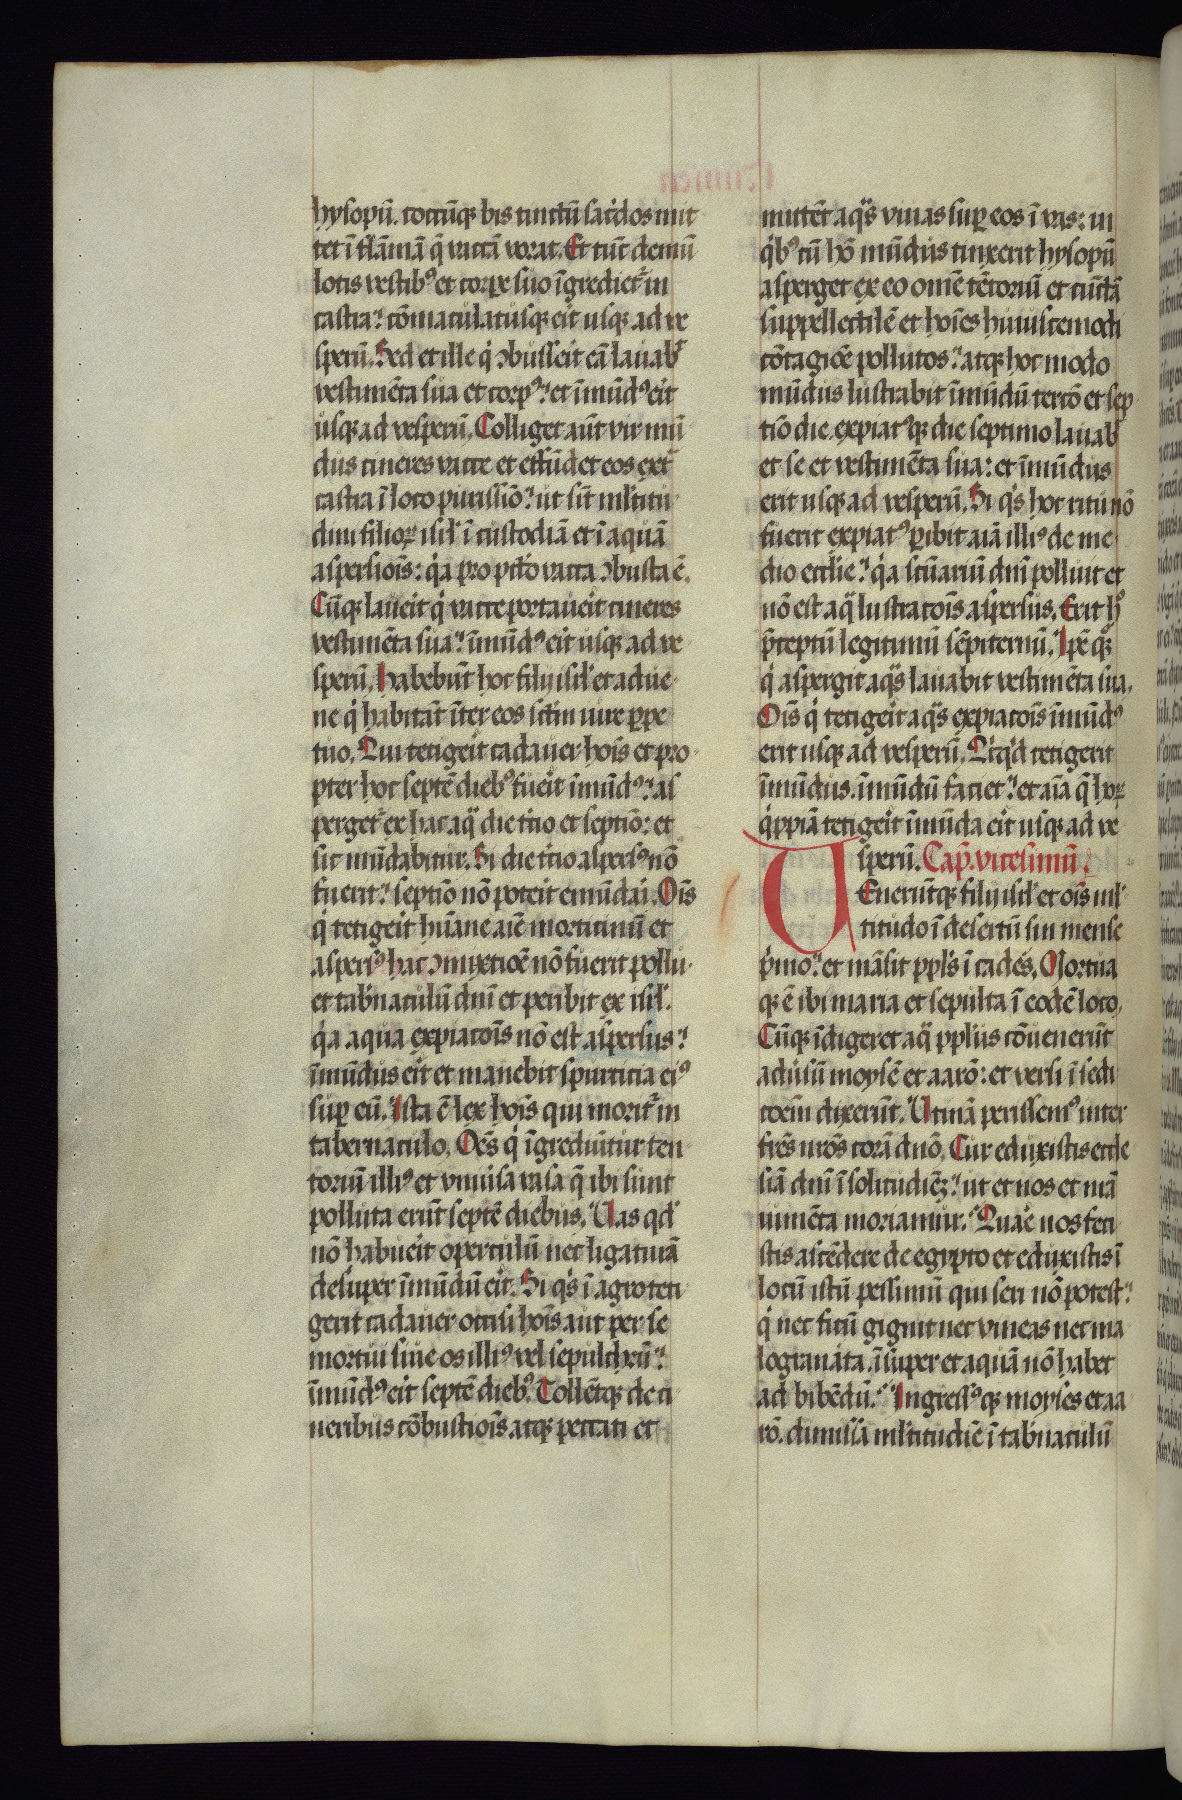 hysopū. coccūqꝫ bis tinctū sac̓dos mit
tet ī flāmā q̄ vaccā vorat. Et tūc demū
lotis vestibꝰ et corꝑe suo īgrediet᷑ in
castra: cōmaculatusqꝫ erit usqꝫ ad ve
sperū. Sed et ille q̇ ɔbusserit eā lauabit
vestimēta sua et corpꝰ: et īmūdꝰ erit
usqꝫ ad vesperū. Colliget aūt vir mū
dus cineres vacce et effūdet eos ext̓
castra ī loco purissiō: ut sīt ml̓titu
dini filioꝝ isrl̓ ī custodiā et ī aquā
aspersiōis: q̇a pro pctō vacca ɔbusta ē.
Cūqꝫ lauerit q̇ vacce portauerit cineres
vestimēta sua: īmūdꝰ erit usqꝫ ad ve
sperū. Habebūt hoc filij isrl̓ et adue
ne q̇ habitāt īter eos sc̄m iure ꝑpe
tuo. Qui tetigerit cadauer hoīs et pro
pter hoc septē diebꝰ fuerit īmūdꝰ: as
perget᷑ ex hac aq̈ die t̓cio et septiō: et
sic mūdabitur. Si die t̓cio asp̱sꝰ nō
fuerit: septiō nō poterit emūdari. Oīs
q̇ tetigerit humāne aīe morticinū et
aspersꝰ hac ɔmixtiōe nō fuerit pollu
et tab̓naculū dnī et peribit ex isrl̓.
q̇a aqua expiatoīs nō est aspersus:
īmūdus erit et manebit spurticia eiꝰ
suꝑ eū. Ista ē lex hoīs qui morit᷑ in
tabernaculo. Oēs q̇ īgrediūtur ten
toriū illiꝰ et vniu̓sa vasa q̄ ibi sunt
polluta erūt septē diebus. Uas qd̓
nō habuerit operculū nec ligaturā
desuper īmūdū erit. Si q̇s ī agro teti
gerit cadauer occisi hoīs aut per se
mortui siue os illiꝰ vel sepulchrū:
īmūdꝰ erit septē diebꝰ. Tollētqꝫ de ci
neribus cōbustioīs atqꝫ peccati et
mittēt aq̈s viuas suꝑ eos ī vas: in
q̇bꝰ cū hō mūdus tinxerit hysopū
asperget ex eo omē tētoriū et cūctā
suppellectilē et hoīes huiuscemodi
cōtagiōe pollutos: atqꝫ hoc modo
mūdus lustrabit īmūdū tercō et sep
tiō die. expiatꝰqꝫ die septimo lauab̓
et se et vestimēta sua: et īmūdus
erit usqꝫ ad vesperū. Si q̇s hoc ritu nō
fuerit expiatꝰ ꝑibit aīā illiꝰ de me
dio eccl̓ie: q̇a scūariū dnī polluit et
nō est aq̈ lustratoīs aspersus. Erit hꝰ
p̄ceptū legitimū sēpiternū. Ip̄e qꝫ
q̇ aspergit aq̈s lauabit vestimēta sua.
Oīs q̇ tetigerit aq̈s expiatoīs īmūdꝰ
erit usqꝫ ad vesperū. Qicq̇d tetigerit
īmūdus. īmūdū faciet: et aīa q̄ hoꝝ
q̇ppiā tetigerit īmūda erit usqꝫ ad ve
sperū. Cap̄. vicesimū.
UEnerūtqꝫ filij isrl̓ et oīs ml̓
titudo ī desertū sin mense
p̓mo: et māsit ppl̓s ī cades. Mortua
qꝫ ē ibi maria et sepulta ī eodē loco.
Cūqꝫ īdigeret aq̈ ppl̓us cōuenerūt
adu̓sū moysē et aarō: et versi ī sedi
coēm dixerūt. Utinā perissemꝰ inter
fr̄es nr̄os corā dn̄o. Cur eduxistis eccle
siā dnī ī solitudiēꝫ: ut et nos et nr̄a
iumēta moriamur. Quare nos feci
stis ascēdere de egypto et eduxistis ī
locū istū pessimū qui seri nō potest:
q̇ nec ficū gignit nec vineas nec ma
logranata. īsuper et aquā nō habet
ad bibēdū. Ingressꝰqꝫ moyses et aa
rō. dimissa ml̓titudiē ī tab̓naculū